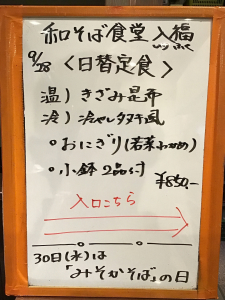 和そば食堂 入福
いっぷく
9/28 〈日替定食〉
温）きざみ昆布
冷）冷やしタヌキ風
・おにぎり(若菜わかめ)
・小鉢2品付
¥850.-
入口こちら
30日(水)は
「みそかそば」の日